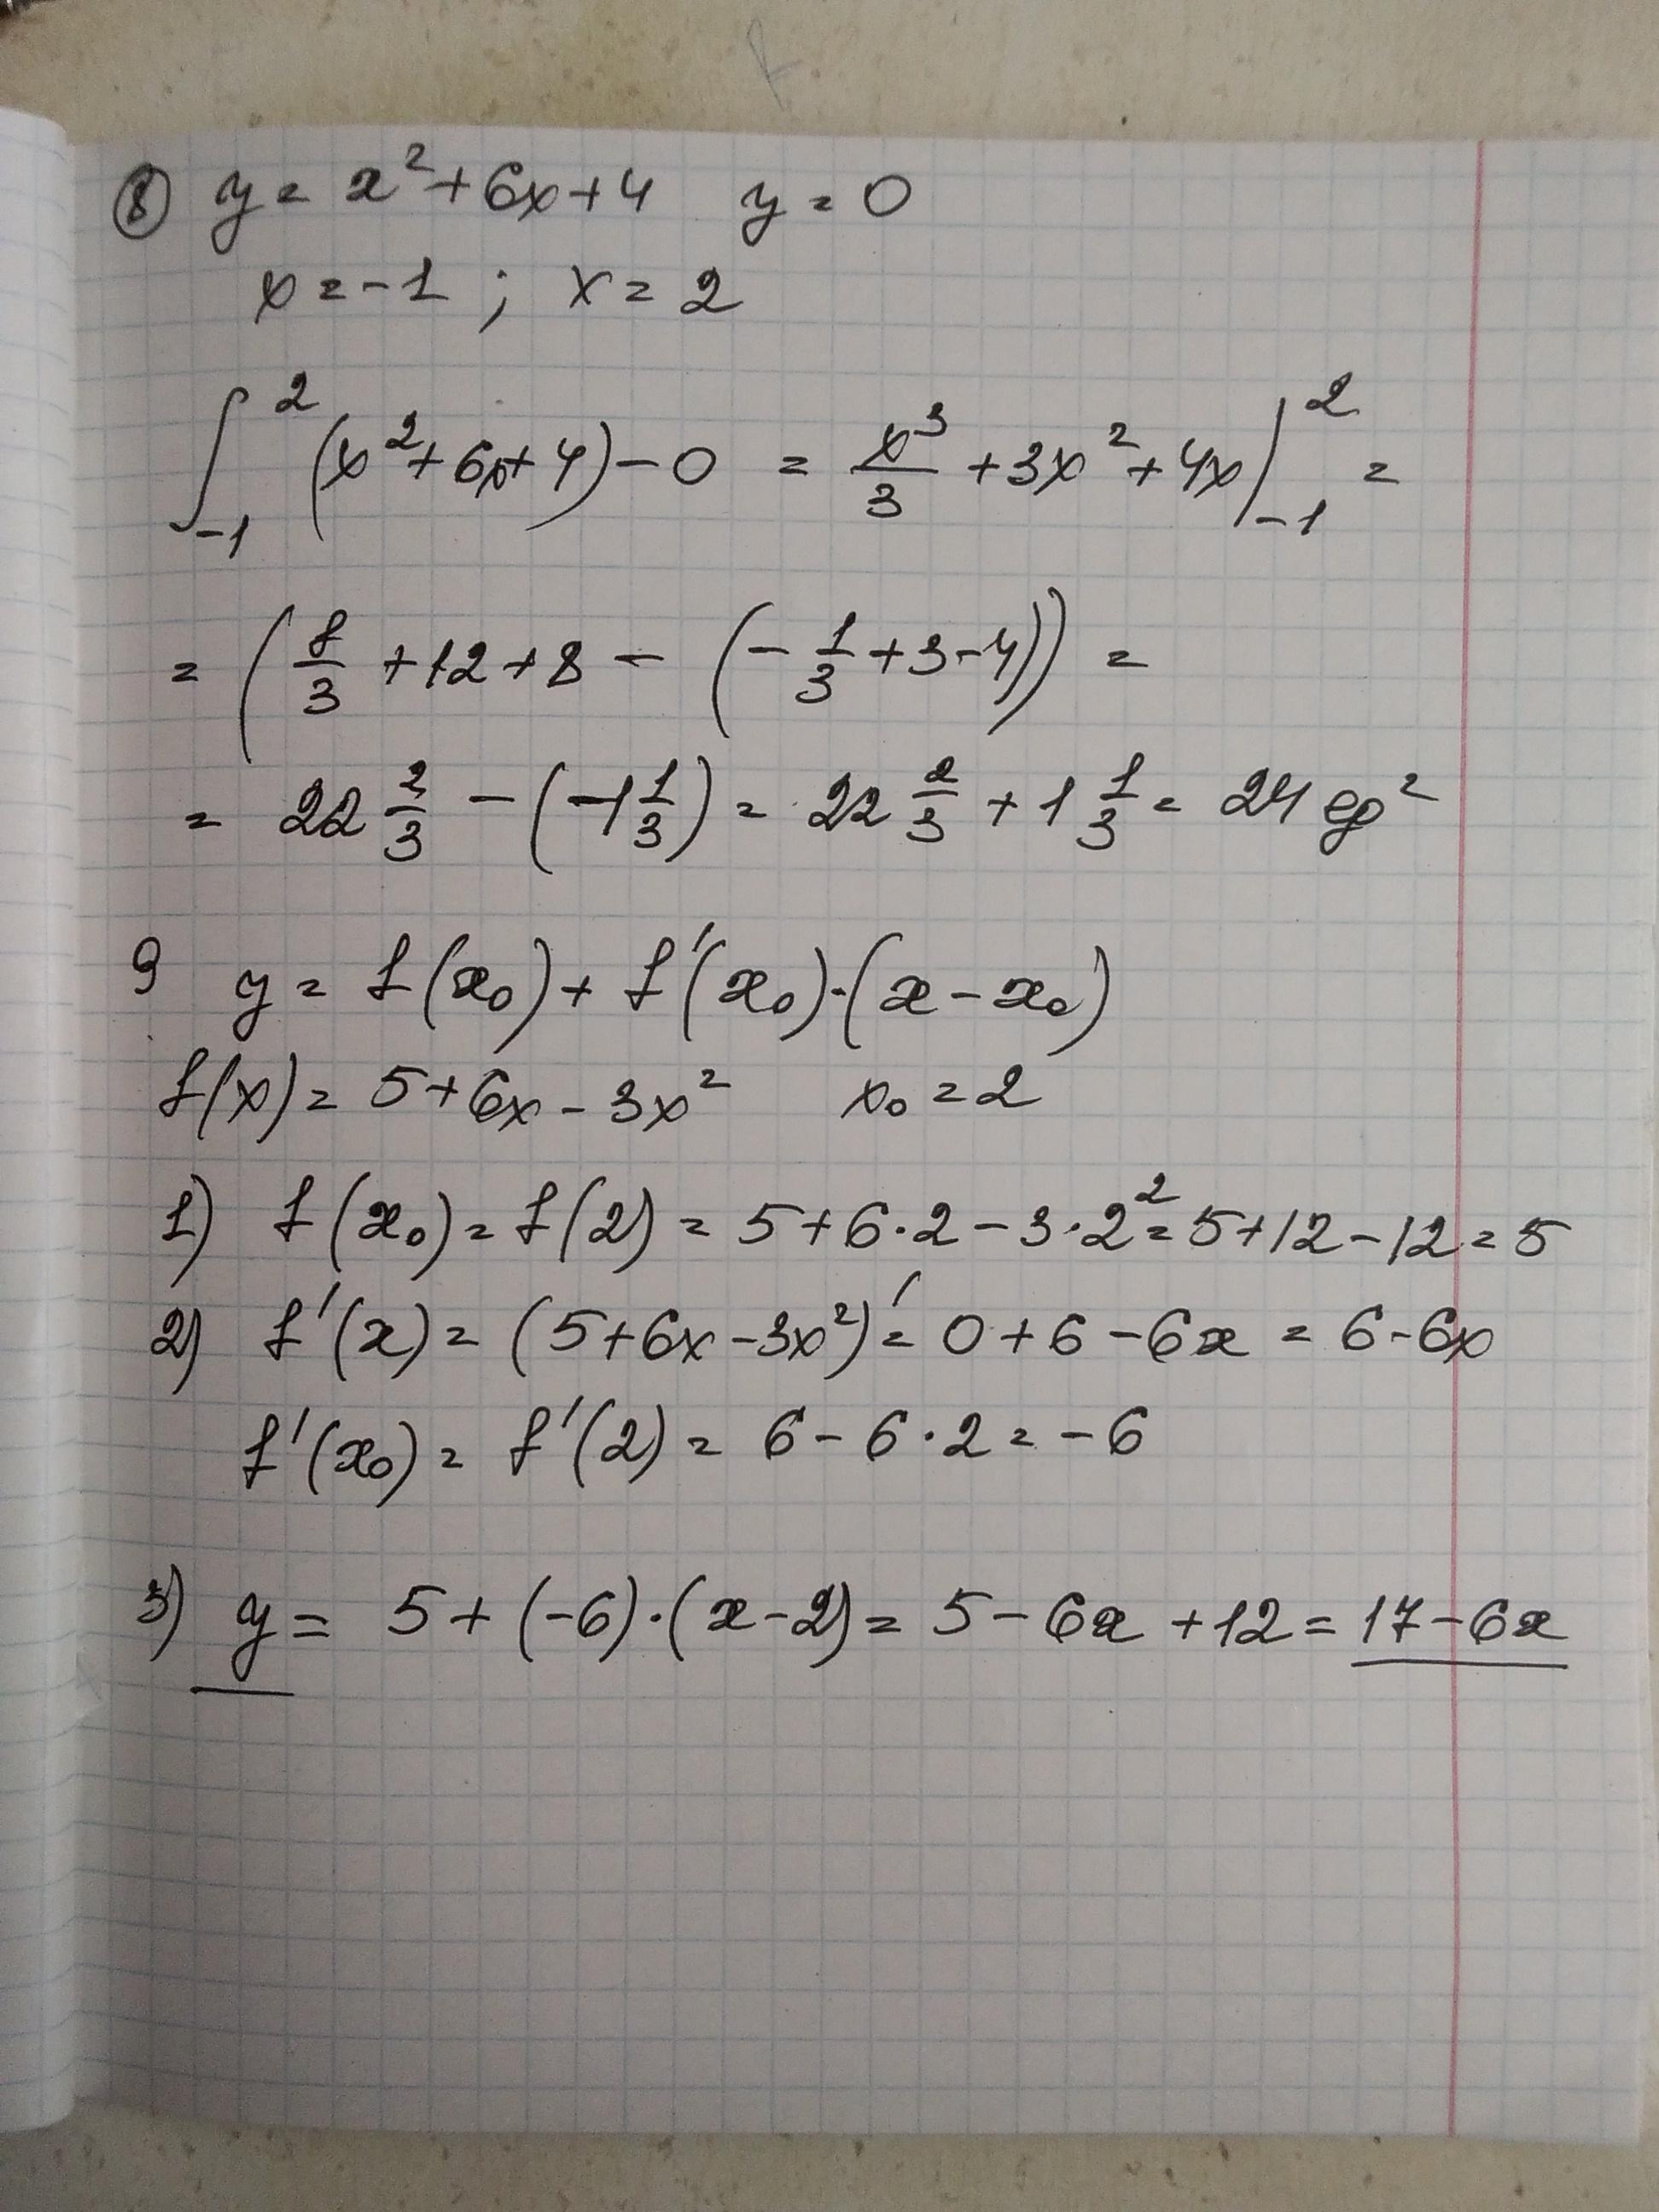 ⑧ y = x² + 6x + 4 y = 0
x = -1 ; x = 2
∫₋₁² (x² + 6x + 4) - 0 = x³/3 + 3x² + 4x |₋₁² =
= (8/3 + 12 + 8 - (-1/3 + 3 - 4)) =
= 22 2/3 - (-1 1/3) = 22 2/3 + 1 1/3 = 24 ед²
9 y = f(x₀) + f'(x₀)·(x - x₀)
f(x) = 5 + 6x - 3x² x₀ = 2
1) f(x₀) = f(2) = 5 + 6·2 - 3·2² = 5 + 12 - 12 = 5
2) f'(x) = (5 + 6x - 3x²)' = 0 + 6 - 6x = 6 - 6x
f'(x₀) = f'(2) = 6 - 6·2 = -6
3) y = 5 + (-6)·(x - 2) = 5 - 6x + 12 = 17 - 6x